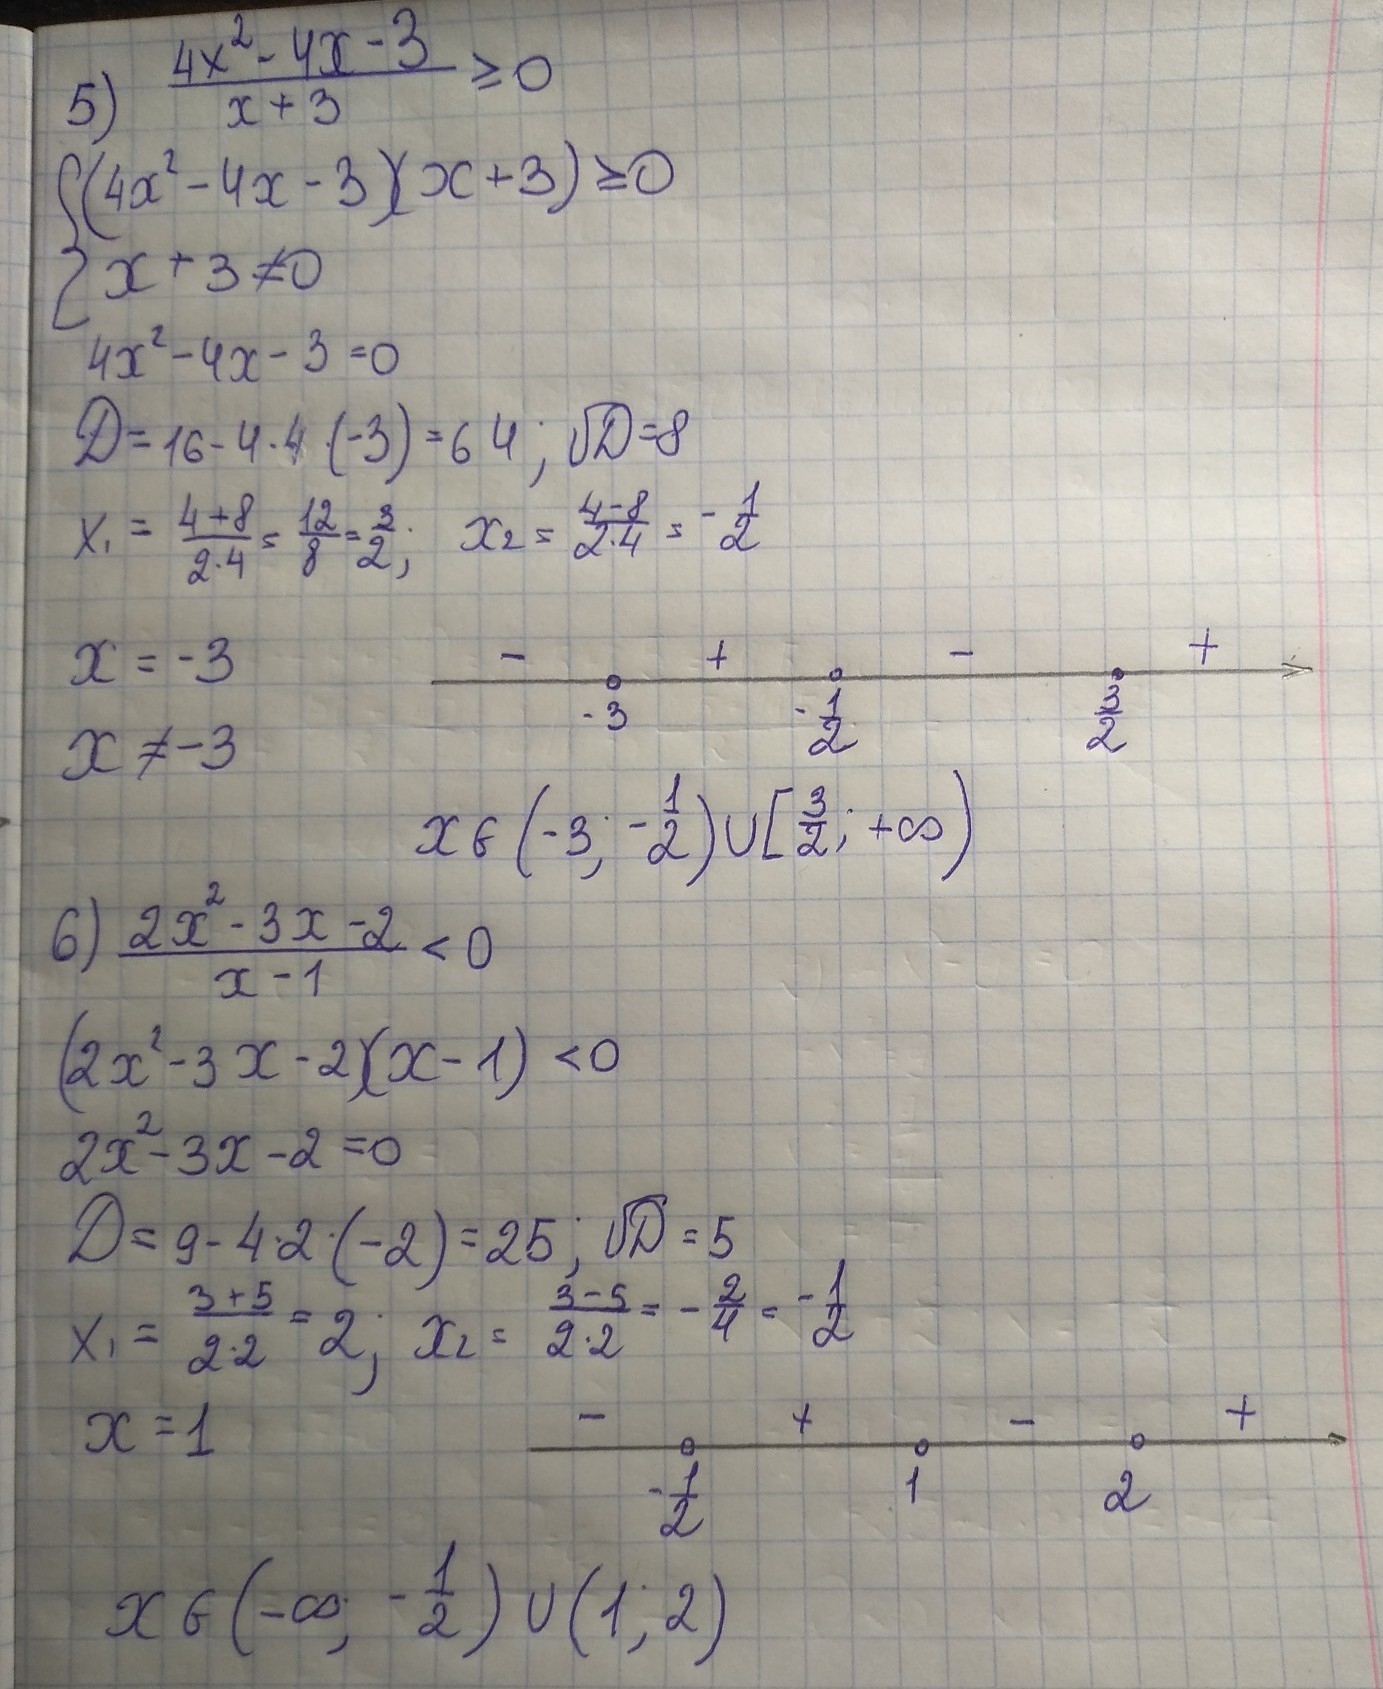 5) (4x² - 4x - 3)/(x + 3) ≥ 0
{ (4x² - 4x - 3)(x + 3) ≥ 0
{ x + 3 ≠ 0
4x² - 4x - 3 = 0
D = 16 - 4·4·(-3) = 64; √D = 8
x₁ = (4+8)/(2·4) = 12/8 = 3/2; x₂ = (4-8)/(2·4) = -1/2
x = -3
- + - +
-3 -1/2 3/2
x ≠ -3
x ∈ (-3; -1/2) ∪ [3/2; +∞)
6) (2x² - 3x - 2)/(x - 1) < 0
(2x² - 3x - 2)(x - 1) < 0
2x² - 3x - 2 = 0
D = 9 - 4·2·(-2) = 25; √D = 5
x₁ = (3+5)/(2·2) = 2; x₂ = (3-5)/(2·2) = -2/4 = -1/2
x = 1
- + - +
-1/2 1 2
x ∈ (-∞; -1/2) ∪ (1; 2)